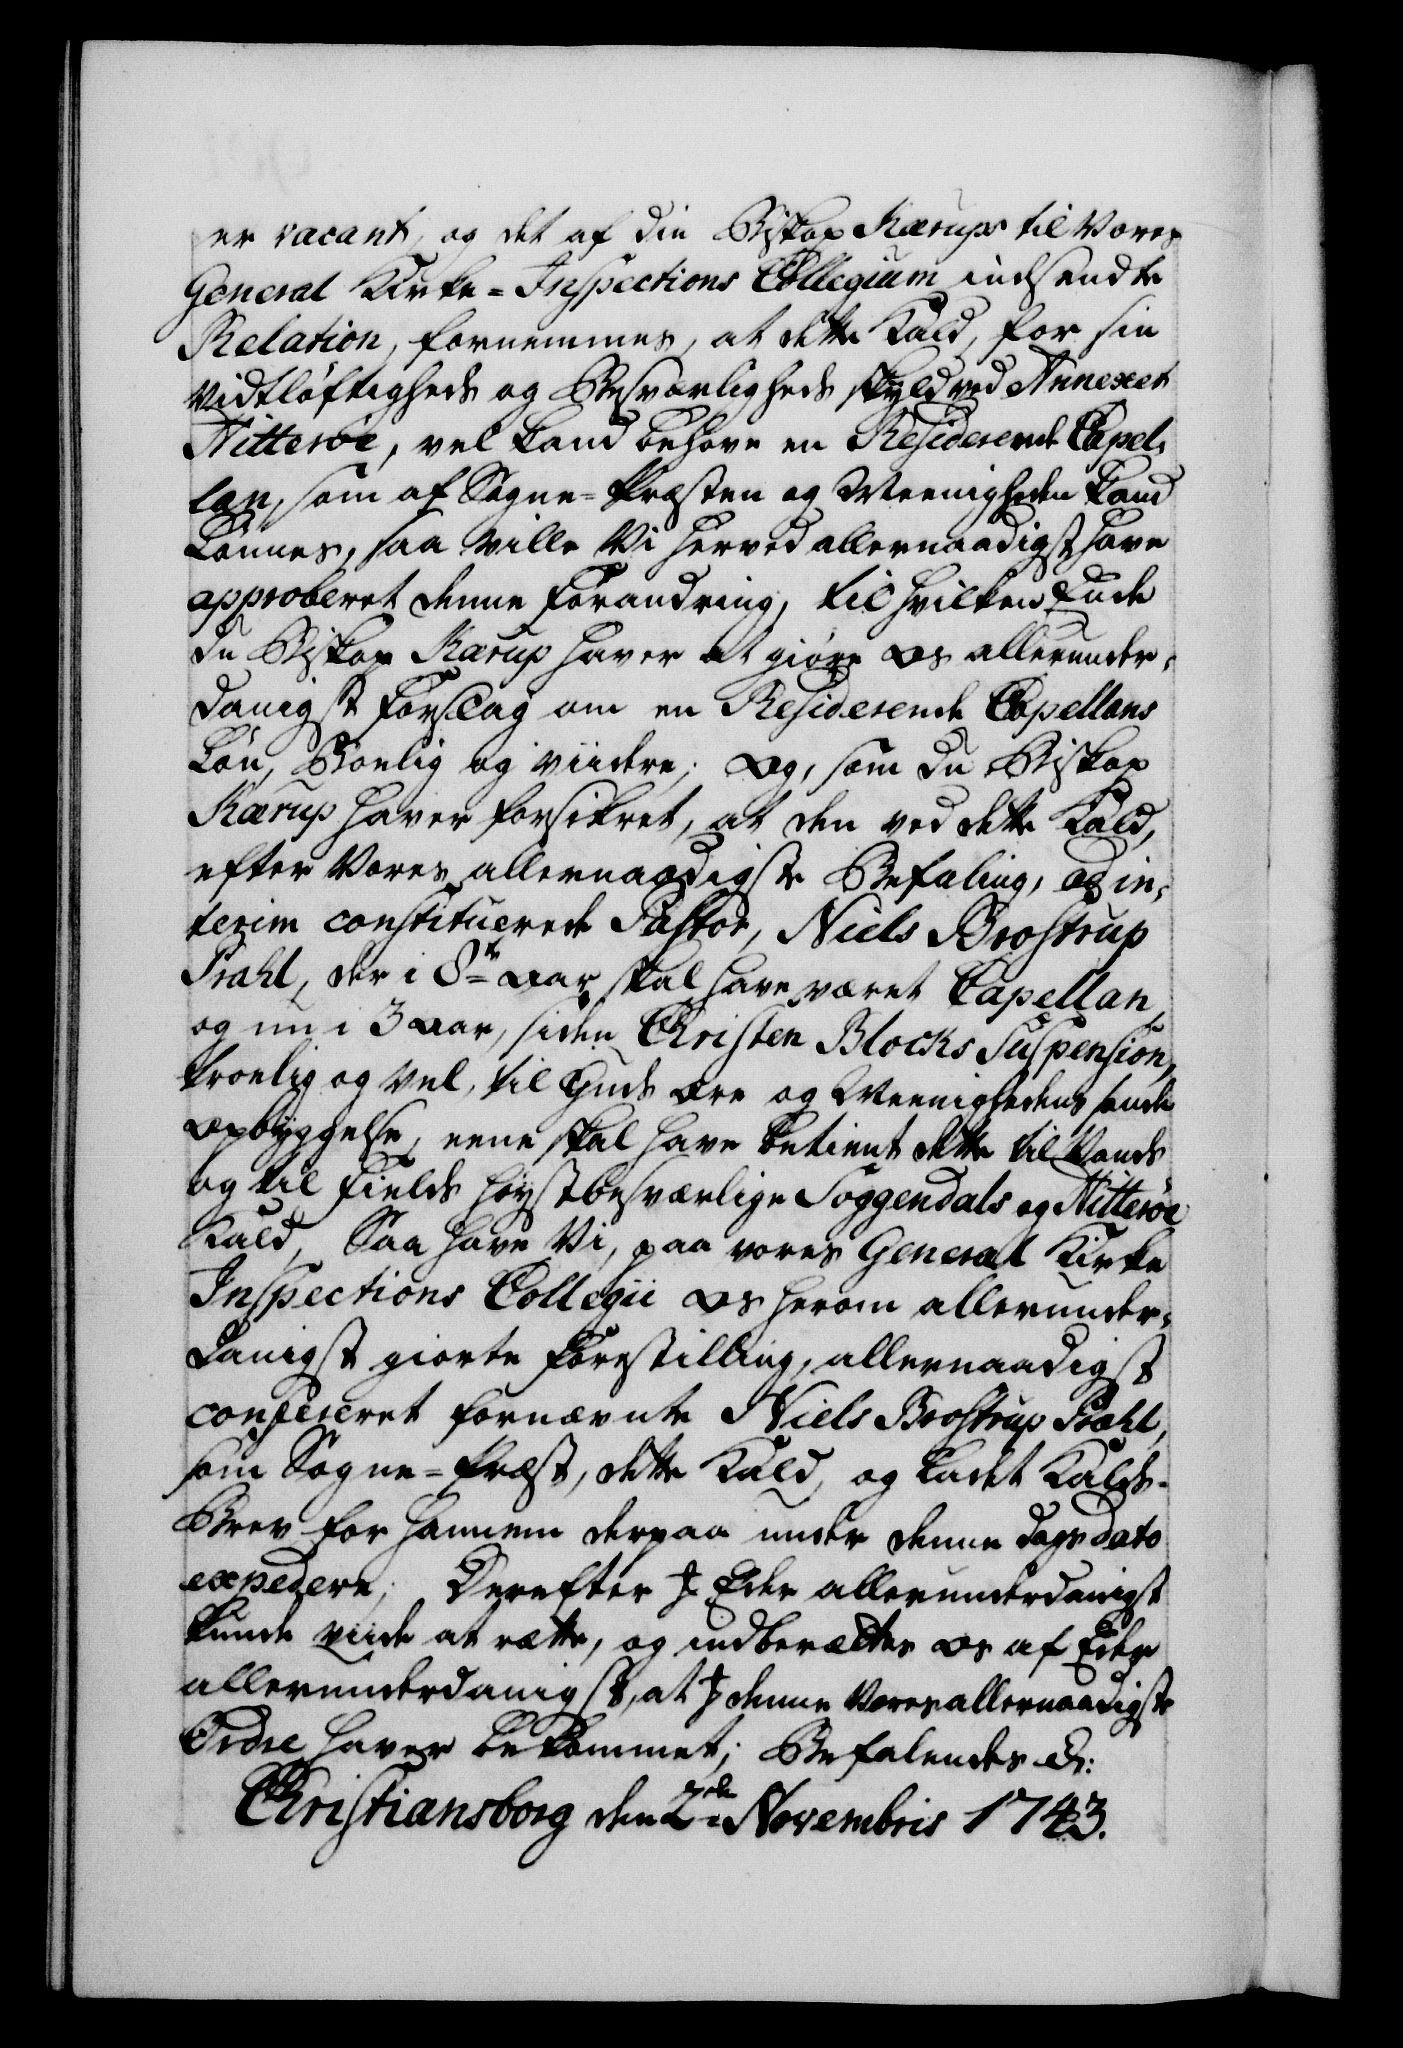 er vacant, og det af din Biskop Kærups til Vores
General Kirke-Inspections Collegium indsendte
Relation, fornemmes, at dette Kald, for sin
Vidtløftigheds og Besværligheds skyld ved Annexet
Hitterøe, vel kand behøve en Residerende Capel-
lan, som af Sogne-Præsten og Meenigheden kand
Lønnes, saa ville Vi herved allernaadigst have
approberet denne Forandring, til hvilken Ende
du Biskop Kærup haver at giøre os allerunder-
danigst Forslag om en Residerende Capellans
Løn, Boelig og viidere; Og, som du Biskop
Kærup haver forsikret, at den ved dette Kald,
efter Vores allernaadigste Befaling, ad in-
terim constituerede Pastor, Niels Brostrup
Prahl, der i 8te Aar skal have været Capellan,
og nu i 3 Aar, siden Christen Blocks Suspension,
troelig og vel, til Guds Ære og Meenighedens sande
Opbyggelse, eene skal have betient dette til Vands
og til Fields høystbesværlige Soggendals og Hitterøe
Kald, Saa have Vi, paa vores General Kirke
Inspections Collegii Os herom allerunder-
danigst giorte Forestilling, allernaadigst
confereret fornævnte Niels Brostrup Prahl,
som Sogne-Præst, dette Kald, og ladet Kalds-
Brev for hannem derpaa under denne Dags dato
expedere; Derefter I Eder allerunderdanigst
kunde viide at rætte, og indberættes Os af Eder
allerunderdanigst, at I denne Vores allernaadigste
Ordre haver bekommet; Befalendes &c:
Christiansborg den 2de Novembris 1743.